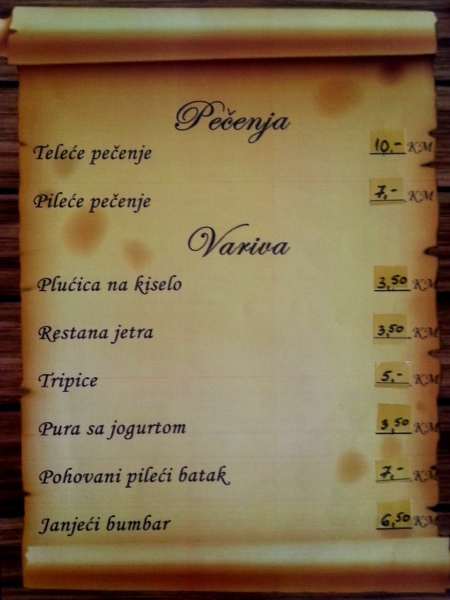 Pečenja
Teleće pečenje 10,- KM
Pileće pečenje 7,- KM
Variva
Plućica na kiselo 3,50 KM
Restana jetra 3,50 KM
Tripice 5,- KM
Pura sa jogurtom 3,50 KM
Pohovani pileći batak 7,- KM
Janjeći bumbar 6,50 KM